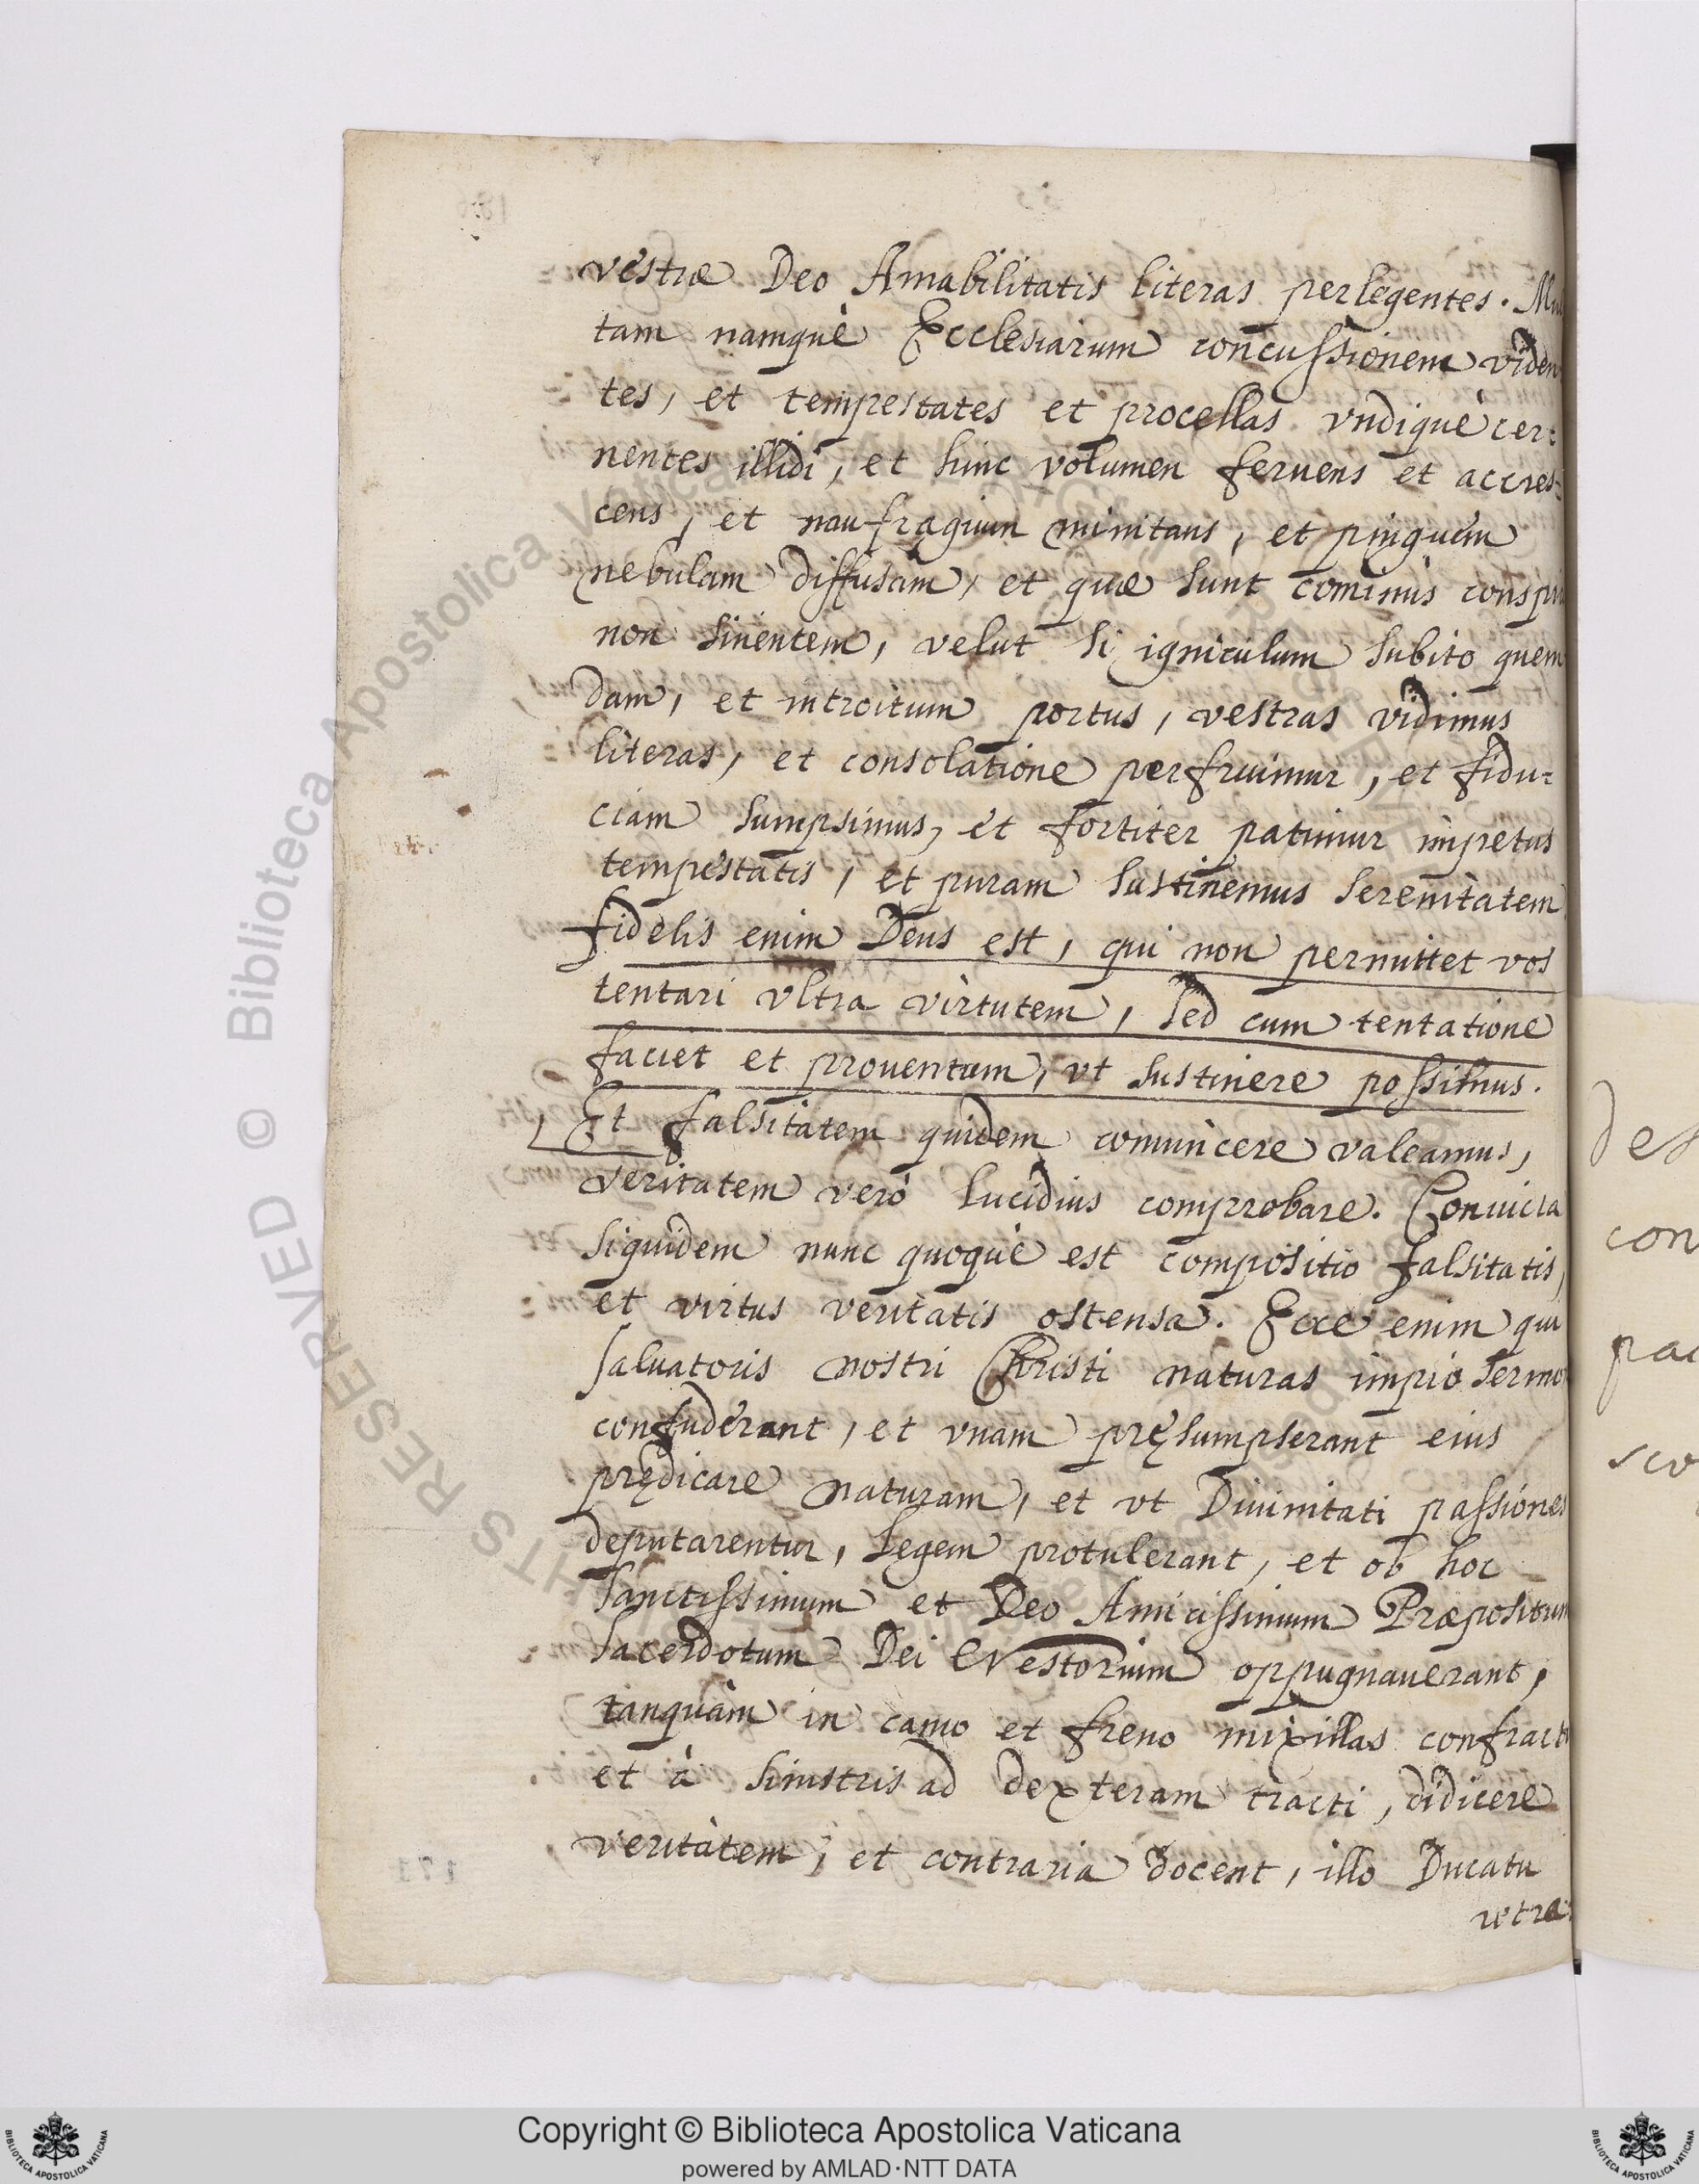 vestræ Deo Amabilitatis literas perlegentes. Mul
tam namquè Ecclesiarum concussionem viden
tes, et tempestates et procellas vndiquè cer=
nentes illidi, et hinc volumen feruens et accres=
cens, et naufragium minitans, et pinguem
nebulam diffusam, et quæ sunt cominùs conspici
non sinentem, velut si igniculum subito quem
dam, et introitum portus, vestras vidimus
literas, et consolatione perfruimur, et fidu=
ciam sumpsimus, et fortiter patimur impetus
tempestatis, et puram sustinemus serenitatem
fidelis enim Deus est, qui non permittet vos
tentari vltra virtutem, sed cum tentatione
faciet et prouentum, vt sustinere possimus.
Et falsitatem quidem conuincere valeamus,
veritatem verò lucidius comprobare. Conuicta
siquidem nunc quoquè est compositio falsitatis,
et virtus veritatis ostensa. Ecce enim qui
saluatoris nostri Christi naturas impio sermo
confuderant, et vnam pręsumpserant eius
prędicare naturam, et vt Diuinitati passiones
deputarentur, legem protulerant, et ob hoc
sanctissimum et Deo Amicissimum Præpositum
sacerdotum Dei Nestorium oppugnauerant,
tanquàm in camo et freno mixillas confracti
et à sinistris ad dexteram tracti, didicere
veritatem, et contraria docent, illo Ducatu
retra=
des
con
pac
sco
Copyright © Biblioteca Apostolica Vaticana
powered by AMLAD·NTT DATA